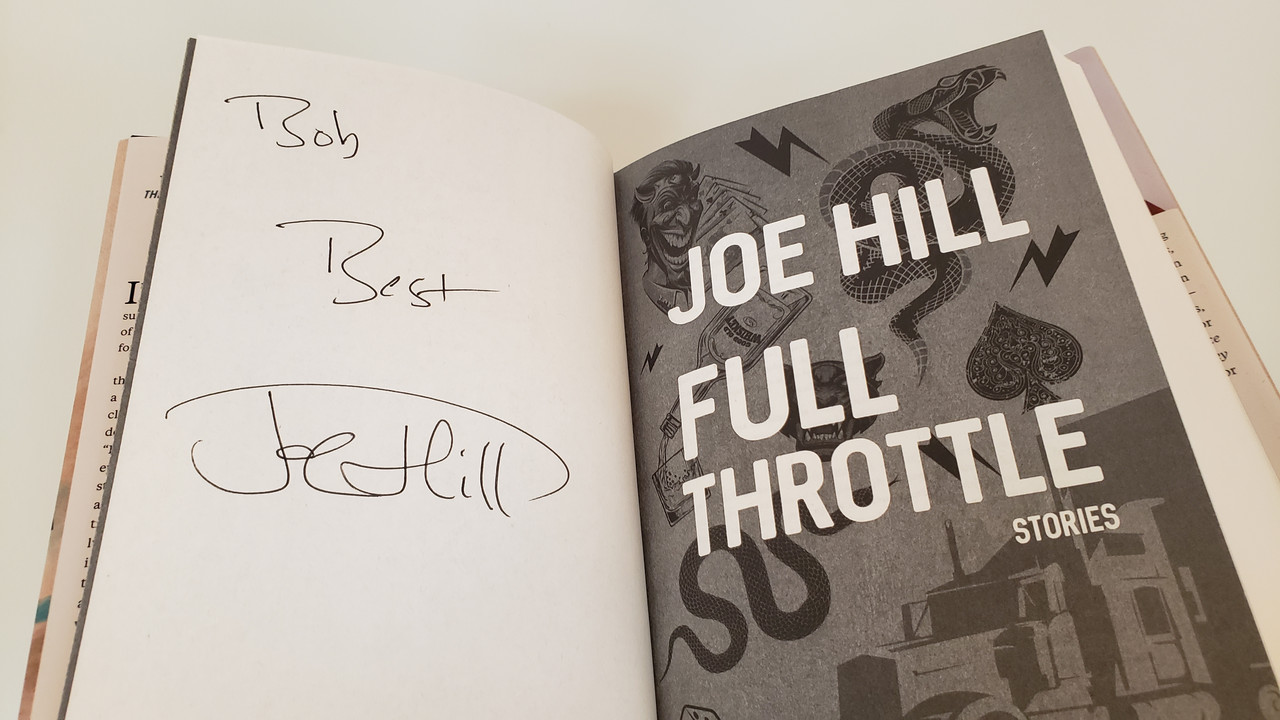 Bob
Best
Joe Hill
JOE HILL
FULL
THROTTLE
STORIES
WHISKEY